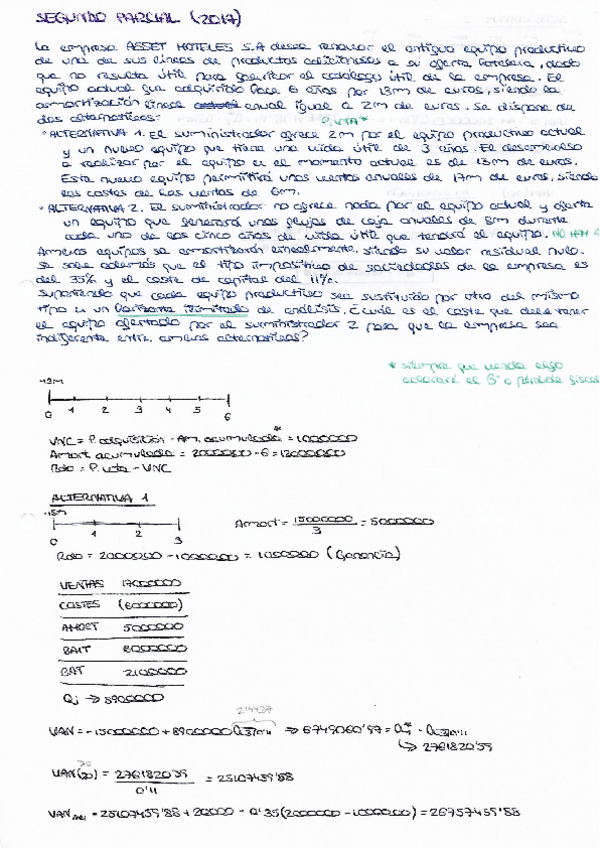 SEGUNDO PARCIAL (2017)
La empresa ASSET HOTELES S.A desea renovar el antiguo equipo productivo
de una de sus líneas de productos adicionales a su oferta hotelera, dado
que no resulta útil para el catálogo útil de la empresa. El
equipo actual fue adquirido hace 6 años por 13m de euros, siendo la
amortización lineal anual igual a 2m de euros. Se dispone de
dos alternativas:
P. VTA*
• ALTERNATIVA 1. El suministrador ofrece 2m por el equipo productivo actual
y un nuevo equipo que tiene una vida útil de 3 años. El desembolso
a realizar por el equipo en el momento actual es de 15m de euros.
Este nuevo equipo permitirá unas ventas anuales de 17m de euros, siendo
los costes de las ventas de 6m.
• ALTERNATIVA 2. El suministrador no ofrece nada por el equipo actual y oferta
un equipo que generará unos flujos de caja anuales de 8m durante
cada uno de los cinco años de vida útil que tendrá el equipo. NO HAY
Ambos equipos se amortizarán linealmente, siendo su valor residual nulo.
Se sabe además que el tipo impositivo de sociedades de la empresa es
del 35% y el coste de capital del 11%.
Suponiendo que cada equipo productivo sea sustituido por otro del mismo
tipo en un horizonte ilimitado de análisis, ¿cuál es el coste que debe tener
el equipo ofertado por el suministrador 2 para que la empresa sea
indiferente entre ambas alternativas?
* siempre que venda algo
calcular el Bº o pérdida fiscal
-13M
0 1 2 3 4 5 6
VNC = P. adquisición - Am. acumulada* = 1000000
Amort acumulada = 2000000 · 6 = 12000000
Rdo = P. vta - VNC
ALTERNATIVA 1
-15M
0 1 2 3
Amort = 15000000 / 3 = 5000000
Rdo = 2000000 - 1000000 = 1000000 (Ganancia)
VENTAS 17000000
COSTES (6000000)
AMORT 5000000
BAIT 6000000
BAT 2100000
Qj → 8900000
2'4437
VAN = -15000000 + 8900000 a3|0'11 ⇒ 6749060'97 = a · a3|0'11
↳ 2761820'59
VAN(∞) = 2761820'59 / 0'11 = 25107459'88
VAN = 25107459'88 + 20000 - 0'35(2000000 - 1000000) = 26757459'88